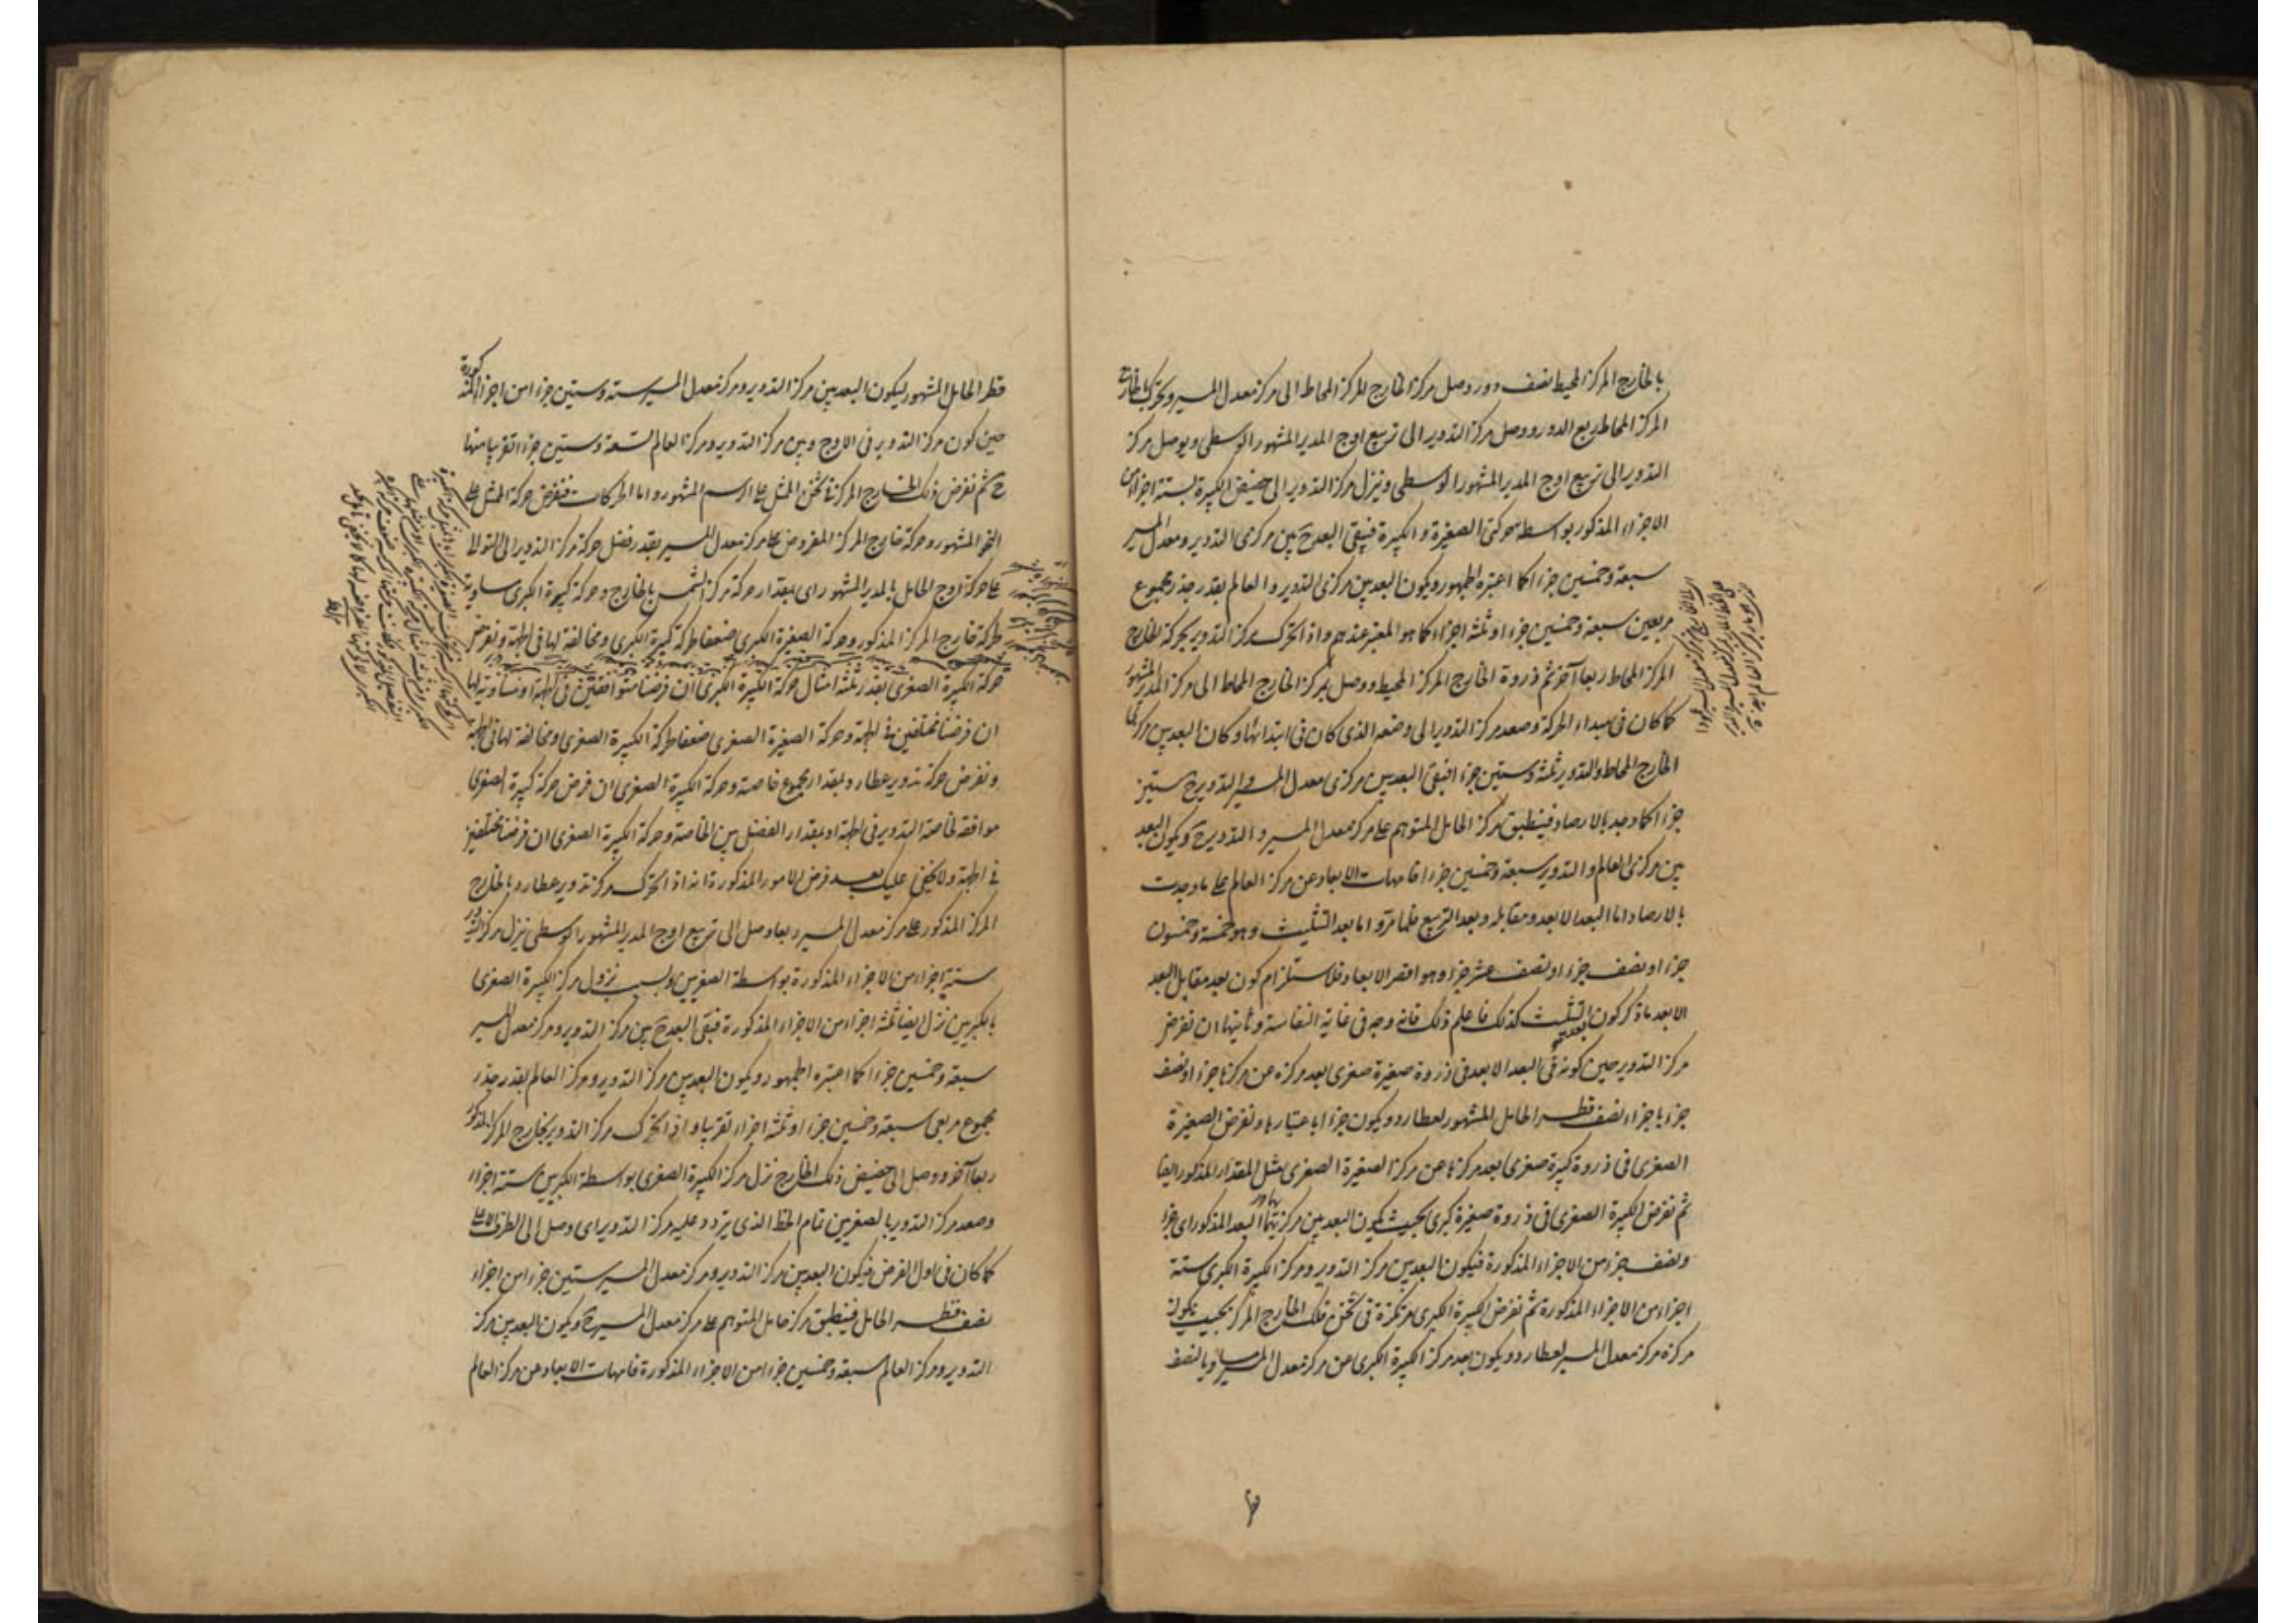 بالخارج المركز المحيط نصف دور وصل مركز الخارج المركز المحاط الى مركز معدل المسير وتحرك بالخارج
المركز المحاط ربع الدور ووصل مركز التدوير الى تربيع اوج المدير المشهور الوسطى ويوصل مركز
التدوير الى تربيع اوج المدير المشهور الوسطى وينزل مركز التدوير الى حضيض الكبيرة بستة اجزاء من
الاجزاء المذكور بواسطة حركتى الصغيرة والكبيرة فيبقى البعد ح بين مركزى التدوير ومعدل المسير
سبعة وخمسين جزءا كما اعتبره الجمهور ويكون البعد بين مركزى التدوير والعالم بقدر جذر مجموع
مربعين سبعة وخمسين جزءا وثلثة اجزاء كما هو المعتبر عندهم واذا تحرك مركز التدوير بحركة الخارج
المركز المحاط ربعا آخر ثم ذروة الخارج المركز المحيط ووصل مركز الخارج المحاط الى مركز المدير المشهور
كما كان فى مبداء الحركة وصعد مركز التدوير الى وضعه الذى كان فى ابتدائها وكان البعد بين مركزى
الخارج المحاط والتدوير ثلثة وستين جزءا فيبقى البعد بين مركزى معدل المسير والتدوير ح ستين
جزءا كما وجد بالارصاد فينطبق مركز الحامل المتوهم على مركز معدل المسير و التدوير ح ويكون البعد
بين مركزى العالم والتدوير سبعة وخمسين جزءا فامهات الابعاد عن مركز العالم على ما وجدت
بالارصاد اما البعد الابعد ومقابله وبعد التربيع فلما مر واما بعد التثليث وهو خمسة وخمسون
جزءا ونصف جزء او نصف عشر جزء وهو اقصر الابعاد فلاستلزام كون بعد مقابل البعد
الابعد ما ذكر كون بعد التثليث كذلك فاعلم ذلك فانه وجه فى غاية النفاسة وثانيها ان نفرض
مركز التدوير حين كونه فى البعد الابعد فى ذروة صغيرة صغرى بعد مركزه عن مركزها جزءا ونصف
جزء باجزاء نصف قطر الحامل المشهور لعطارد ويكون جزءا باعتبارها ونفرض الصغيرة
الصغرى فى ذروة كبيرة صغرى بعد مركزها عن مركز الصغيرة الصغرى مثل المقدار المذكور ايضا
ثم نفرض الكبيرة الصغرى فى ذروة صغيرة كبرى بحيث يكون البعد بين مركزيهما البعد المذكور اى جزء
ونصف جزء من الاجزاء المذكورة فيكون البعد بين مركز التدوير ومركز الكبيرة الكبرى ستة
اجزاء من الاجزاء المذكورة ثم نفرض الكبيرة الكبرى مرتكزة فى ثخن فلك الخارج المركز بحيث يكون
مركزه مركز معدل المسير لعطارد ويكون بعد مركز الكبيرة الكبرى عن مركز معدل المسير مساويا لنصف
قطر الحامل المشهور ليكون البعد بين مركز التدوير ومركز معدل المسير ستة وستين جزءا من اجزاء المذكورة
حين كون مركز التدوير فى الاوج وبين مركز التدوير ومركز العالم تسعة وستين جزءا تقريبا منها
ح ثم نفرض ذلك الخارج المركز فى ثخن الممثل على الرسم المشهور واما الحركات فنفرض حركة الممثل على
النحو المشهور وحركة خارج المركز المفروض على مركز معدل المسير بقدر فضل حركة مركز التدوير الى التوالى
على حركة اوج الحامل بالمدير المشهور اى بمقدار حركة مركز الشمس بالخارج وحركة كبيرة الكبرى مساوية
لحركة خارج المركز المذكور وحركة الصغيرة الكبرى ضعفا لحركة كبيرة الكبرى ومخالفة لها فى الجهة ونفرض
حركة الكبيرة الصغرى بقدر ثلثة امثال حركة الكبيرة الكبرى ان فرضنا متوافقتين فى الجهة او مساوية لها
ان فرضنا مختلفتين فى الجهة وحركة الصغيرة الصغرى ضعفا لحركة الكبيرة الصغرى ومخالفة لها فى الجهة
ونفرض حركة تدوير عطارد بمقدار مجموع خاصته وحركة الكبيرة الصغرى ان فرض حركة كبيرة الصغرى
موافقة لخاصة التدوير فى الجهة او بمقدار الفضل بين الخاصة وحركة الكبيرة الصغرى ان فرضنا مختلفتين
فى الجهة ولا يخفى عليك بعد فرض الامور المذكورة انه اذا تحرك مركز تدوير عطارد بالخارج
المركز المذكور على مركز معدل المسير ربعا وصل الى تربيع اوج المدير المشهور الوسطى نزل مركز التدوير
ستة اجزاء من الاجزاء المذكورة بواسطة الصغريين وبسبب نزول مركز الكبيرة الصغرى
بالكبريين نزل ايضا ثلثة اجزاء من الاجزاء المذكورة فبقى البعد ح بين مركز التدوير ومركز معدل المسير
سبعة وخمسين جزءا كما اعتبره الجمهور ويكون البعد بين مركز التدوير ومركز العالم بقدر جذر
مجموع مربعى سبعة وخمسين جزءا وثلثة اجزاء تقريبا واذا تحرك مركز التدوير بخارج المركز المذكور
ربعا آخر ووصل الى حضيض ذلك الخارج نزل مركز الكبيرة الصغرى بواسطة الكبريين ستة اجزاء
وصعد مركز التدوير بالصغريين تمام الخط الذى يتردد عليه مركز التدوير اى وصل الى الطرف الاعلى
كما كان فى اول الفرض فيكون البعد بين مركز التدوير ومركز معدل المسير ستين جزءا من اجزاء
نصف قطر الحامل فينطبق مركز حامل المتوهم على مركز معدل المسير ح ويكون البعد بين مركز
التدوير ومركز العالم سبعة وخمسين جزءا من الاجزاء المذكورة فامهات الابعاد عن مركز العالم